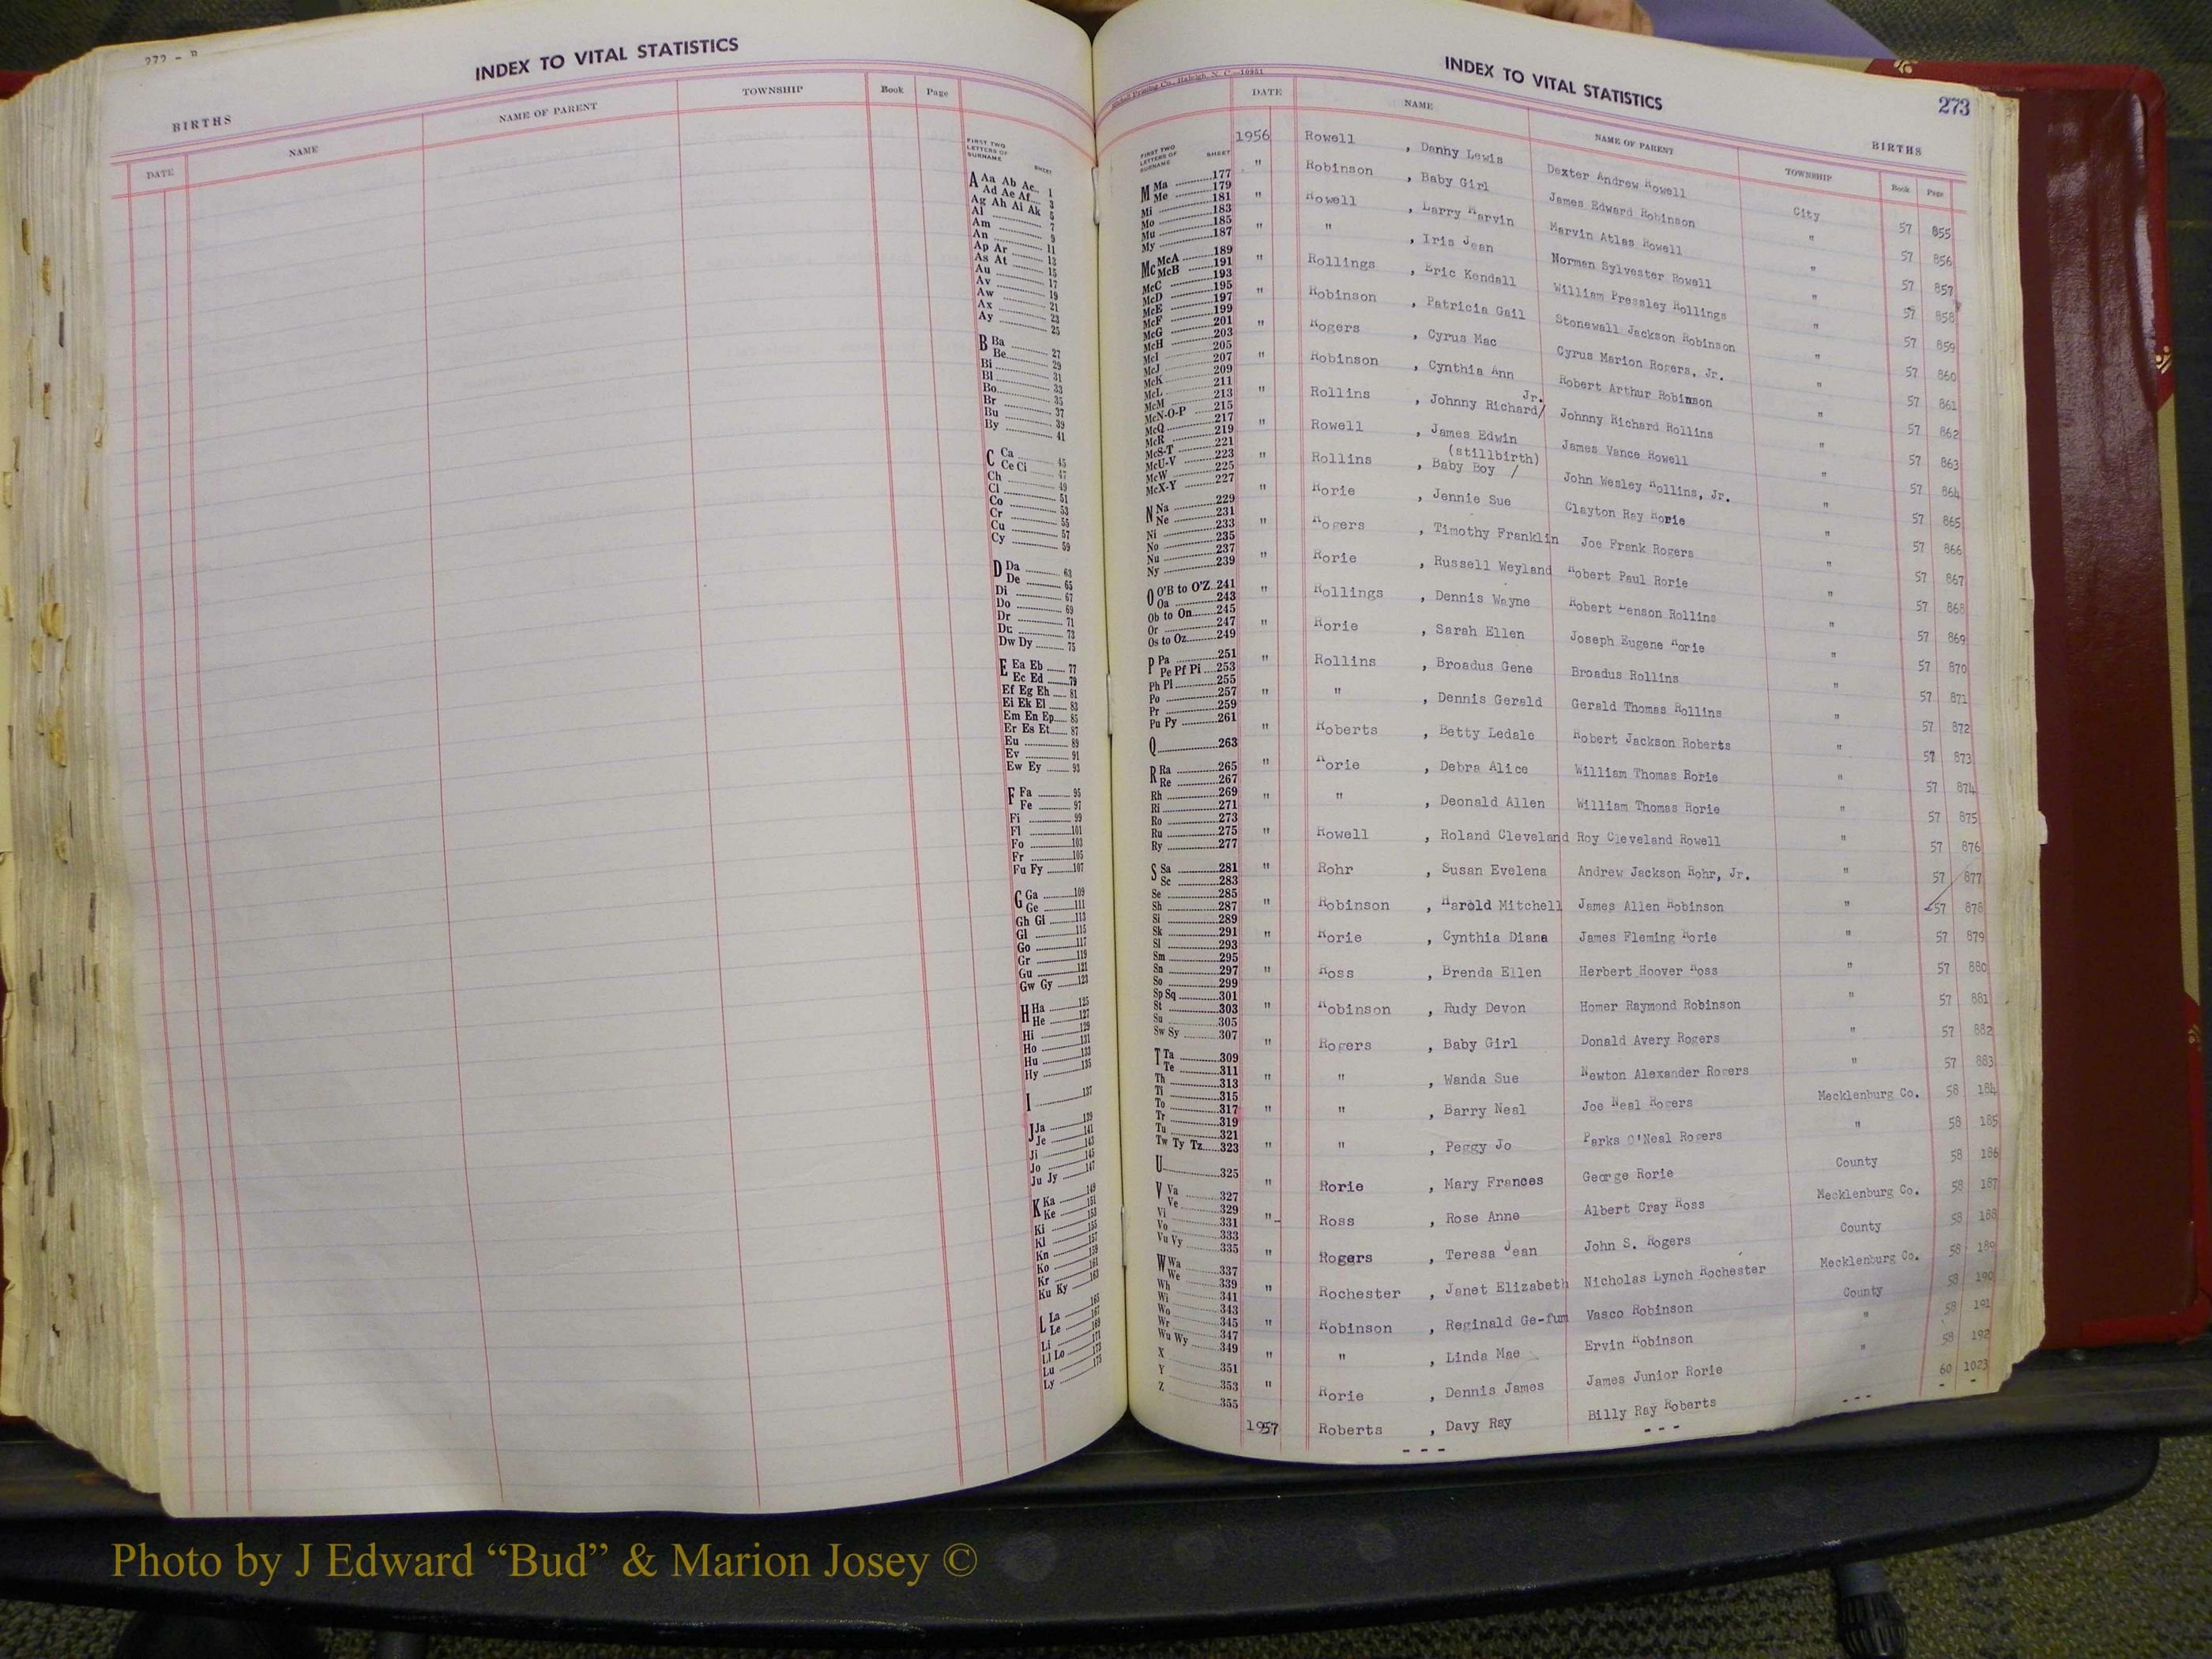 272 - R
INDEX TO VITAL STATISTICS
BIRTHS
DATE NAME NAME OF PARENT TOWNSHIP Book Page
FIRST TWO
LETTERS OF
SURNAME SHEET
A Aa Ab Ac 1
Ad Ae Af 3
Ag Ah Ai Ak 5
Al 7
Am 9
An 11
Ap Ar 13
As At 15
Au 17
Av 19
Aw 21
Ax 23
Ay 25
B Ba 27
Be 29
Bi 31
Bl 33
Bo 35
Br 37
Bu 39
By 41
C Ca 45
Ce Ci 47
Ch 49
Cl 51
Co 53
Cr 55
Cu 57
Cy 59
D Da 63
De 65
Di 67
Do 69
Dr 71
Du 73
Dw Dy 75
E Ea Eb 77
Ec Ed 79
Ef Eg Eh 81
Ei Ek El 83
Em En Ep 85
Er Es Et 87
Eu 89
Ev 91
Ew Ey 93
F Fa 95
Fe 97
Fi 99
Fl 101
Fo 103
Fr 105
Fu Fy 107
G Ga 109
Ge 111
Gh Gi 113
Gl 115
Go 117
Gr 119
Gu 121
Gw Gy 123
H Ha 125
He 127
Hi 129
Ho 131
Hu 133
Hy 135
I 137
J Ja 139
Je 141
Ji 143
Jo 145
Ju Jy 147
K Ka 149
Ke 151
Ki 153
Kl 155
Kn 157
Ko 159
Kr 161
Ku Ky 163
L La 165
Le 167
Li 169
Ll Lo 171
Lu 173
Ly 175
Printing Co., Raleigh, N. C.—10951
INDEX TO VITAL STATISTICS
273
DATE NAME NAME OF PARENT BIRTHS
TOWNSHIP Book Page
FIRST TWO
LETTERS OF
SURNAME SHEET
M Ma 177
Me 179
Mi 181
Mo 183
Mu 185
My 187
Mc McA 189
McB 191
McC 193
McD 195
McE 197
McF 199
McG 201
McH 203
McI 205
McJ 207
McK 209
McL 211
McM 213
McN-O-P 215
McQ 217
McR 219
McS-T 221
McU-V 223
McW 225
McX-Y 227
N Na 229
Ne 231
Ni 233
No 235
Nu 237
Ny 239
O O'B to O'Z 241
Oa 243
Ob to On 245
Or 247
Os to Oz 249
P Pa 251
Pe Pf Pi 253
Ph Pl 255
Po 257
Pr 259
Pu Py 261
Q 263
R Ra 265
Re 267
Rh 269
Ri 271
Ro 273
Ru 275
Ry 277
S Sa 281
Sc 283
Se 285
Sh 287
Si 289
Sk 291
Sl 293
Sm 295
Sn 297
So 299
Sp Sq 301
St 303
Su 305
Sw Sy 307
T Ta 309
Te 311
Th 313
Ti 315
To 317
Tr 319
Tu 321
Tw Ty Tz 323
U 325
V Va 327
Ve 329
Vi 331
Vo 333
Vu Vy 335
W Wa 337
We 339
Wh 341
Wi 343
Wo 345
Wr 347
Wu Wy 349
X 351
Y 353
Z 355
1956 Rowell , Danny Lewis Dexter Andrew Rowell City 57 855
" Robinson , Baby Girl James Edward Robinson " 57 856
" Rowell , Larry Marvin Marvin Atlas Rowell " 57 857
" " , Iris Jean Norman Sylvester Rowell " 57 858
" Rollings , Eric Kendall William Pressley Rollings " 57 859
" Robinson , Patricia Gail Stonewall Jackson Robinson " 57 860
" Rogers , Cyrus Mac Cyrus Marion Rogers, Jr. " 57 861
" Robinson , Cynthia Ann Robert Arthur Robinson " 57 862
" Rollins , Johnny Richard/ Jr. Johnny Richard Rollins " 57 863
" Rowell , James Edwin James Vance Rowell " 57 864
" Rollins , Baby Boy / (stillbirth) John Wesley Rollins, Jr. " 57 865
" Rorie , Jennie Sue Clayton Ray Rorie " 57 866
" Rogers , Timothy Franklin Joe Frank Rogers " 57 867
" Rorie , Russell Weyland Robert Paul Rorie " 57 868
" Rollings , Dennis Wayne Robert Benson Rollins " 57 869
" Rorie , Sarah Ellen Joseph Eugene Rorie " 57 870
" Rollins , Broadus Gene Broadus Rollins " 57 871
" " , Dennis Gerald Gerald Thomas Rollins " 57 872
" Roberts , Betty Ledale Robert Jackson Roberts " 57 873
" Rorie , Debra Alice William Thomas Rorie " 57 874
" " , Deonald Allen William Thomas Rorie " 57 875
" Rowell , Roland Cleveland Roy Cleveland Rowell " 57 876
" Rohr , Susan Evelena Andrew Jackson Rohr, Jr. " 57 877
" Robinson , Harold Mitchell James Allen Robinson " 57 878
" Rorie , Cynthia Diana James Fleming Rorie " 57 879
" Ross , Brenda Ellen Herbert Hoover Ross " 57 880
" Robinson , Rudy Devon Homer Raymond Robinson " 57 881
" Rogers , Baby Girl Donald Avery Rogers " 57 882
" " , Wanda Sue Newton Alexander Rogers " 57 883
" " , Barry Neal Joe Neal Rogers Mecklenburg Co. 58 184
" " , Peggy Jo Parks O'Neal Rogers " 58 185
" Rorie , Mary Frances George Rorie County 58 186
" Ross , Rose Anne Albert Cray Ross Mecklenburg Co. 58 187
" Rogers , Teresa Jean John S. Rogers County 58 188
" Rochester , Janet Elizabeth Nicholas Lynch Rochester Mecklenburg Co. 58 189
" Robinson , Reginald Ge-fum Vasco Robinson County 58 190
" " , Linda Mae Ervin Robinson " 58 191
" Rorie , Dennis James James Junior Rorie " 58 192
1957 Roberts , Davy Ray Billy Ray Roberts - - - 60 1023
- - - - - - - -
Photo by J Edward “Bud” & Marion Josey ©